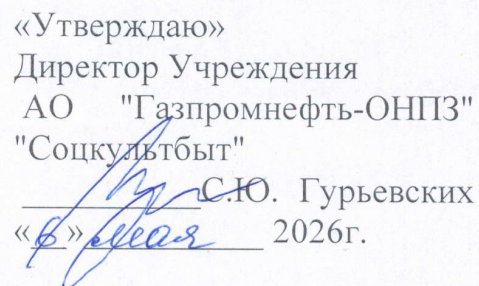 «Утверждаю»
Директор Учреждения
АО "Газпромнефть-ОНПЗ"
"Соцкультбыт"
__________С.Ю. Гурьевских
«6» мая 2026г.